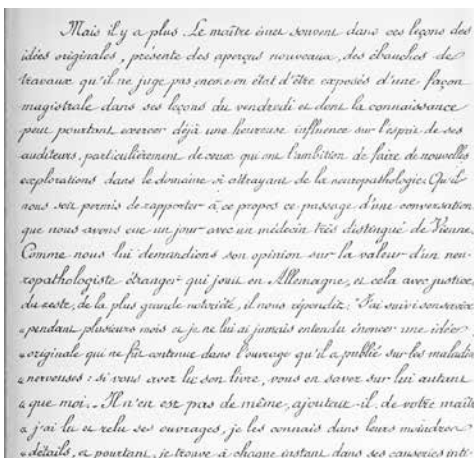 Mais il y a plus. Le maître émet souvent dans ces leçons des
idées originales, présente des aperçus nouveaux, des ébauches de
travaux qu'il ne juge pas encore en état d'être exposés d'une façon
magistrale dans ses leçons du vendredi et dont la connaissance
peut pourtant exercer déjà une heureuse influence sur l'esprit de ses
auditeurs, particulièrement de ceux qui ont l'ambition de faire de nouvelles
explorations dans le domaine si attrayant de la neuropathologie. Qu'il
nous soit permis de rapporter à ce propos ce passage d'une conversation
que nous avons eue un jour avec un médecin très distingué de Vienne.
Comme nous lui demandions son opinion sur la valeur d'un neu-
ropathologiste étranger qui jouit en Allemagne, et cela avec justice,
du reste, de la plus grande notoriété, il nous répondit: "J'ai suivi son service
"pendant plusieurs mois et je ne lui ai jamais entendu énoncer une idée
"originale qui ne fût contenue dans l'ouvrage qu'il a publié sur les maladi
"nerveuses : si vous avez lu son livre, vous en savez sur lui autant
"que moi.. Il n'en est pas de même, ajoutait-il, de votre maît
"j'ai lu et relu ses ouvrages, je les connais dans leurs moindres
"détails, et pourtant, je trouve à chaque instant dans ses causeries inti